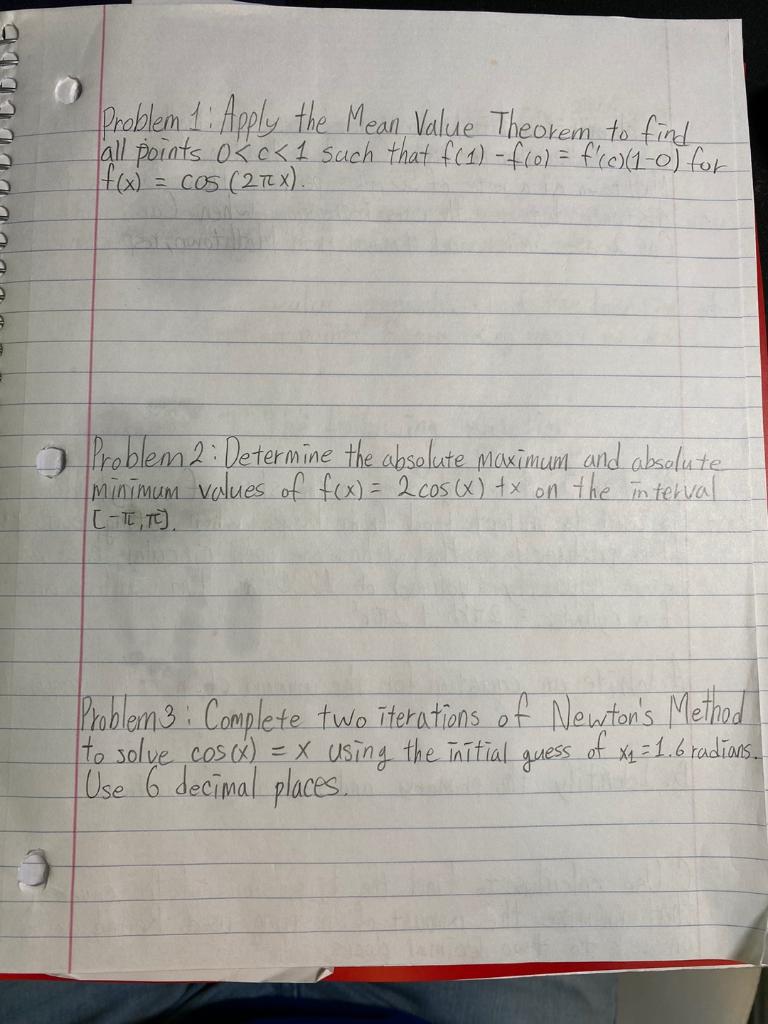 Problem 1: Apply the Mean Value Theorem to find
all points 0<c<1 such that f(1) - f(0) = f'(c)(1-0) for
f(x) = cos (2πx).
Problem 2: Determine the absolute maximum and absolute
minimum values of f(x) = 2cos(x) +x on the interval
[-π, π].
Problem 3: Complete two iterations of Newton's Method
to solve cos(x) = x using the initial guess of x₁=1.6 radians.
Use 6 decimal places.